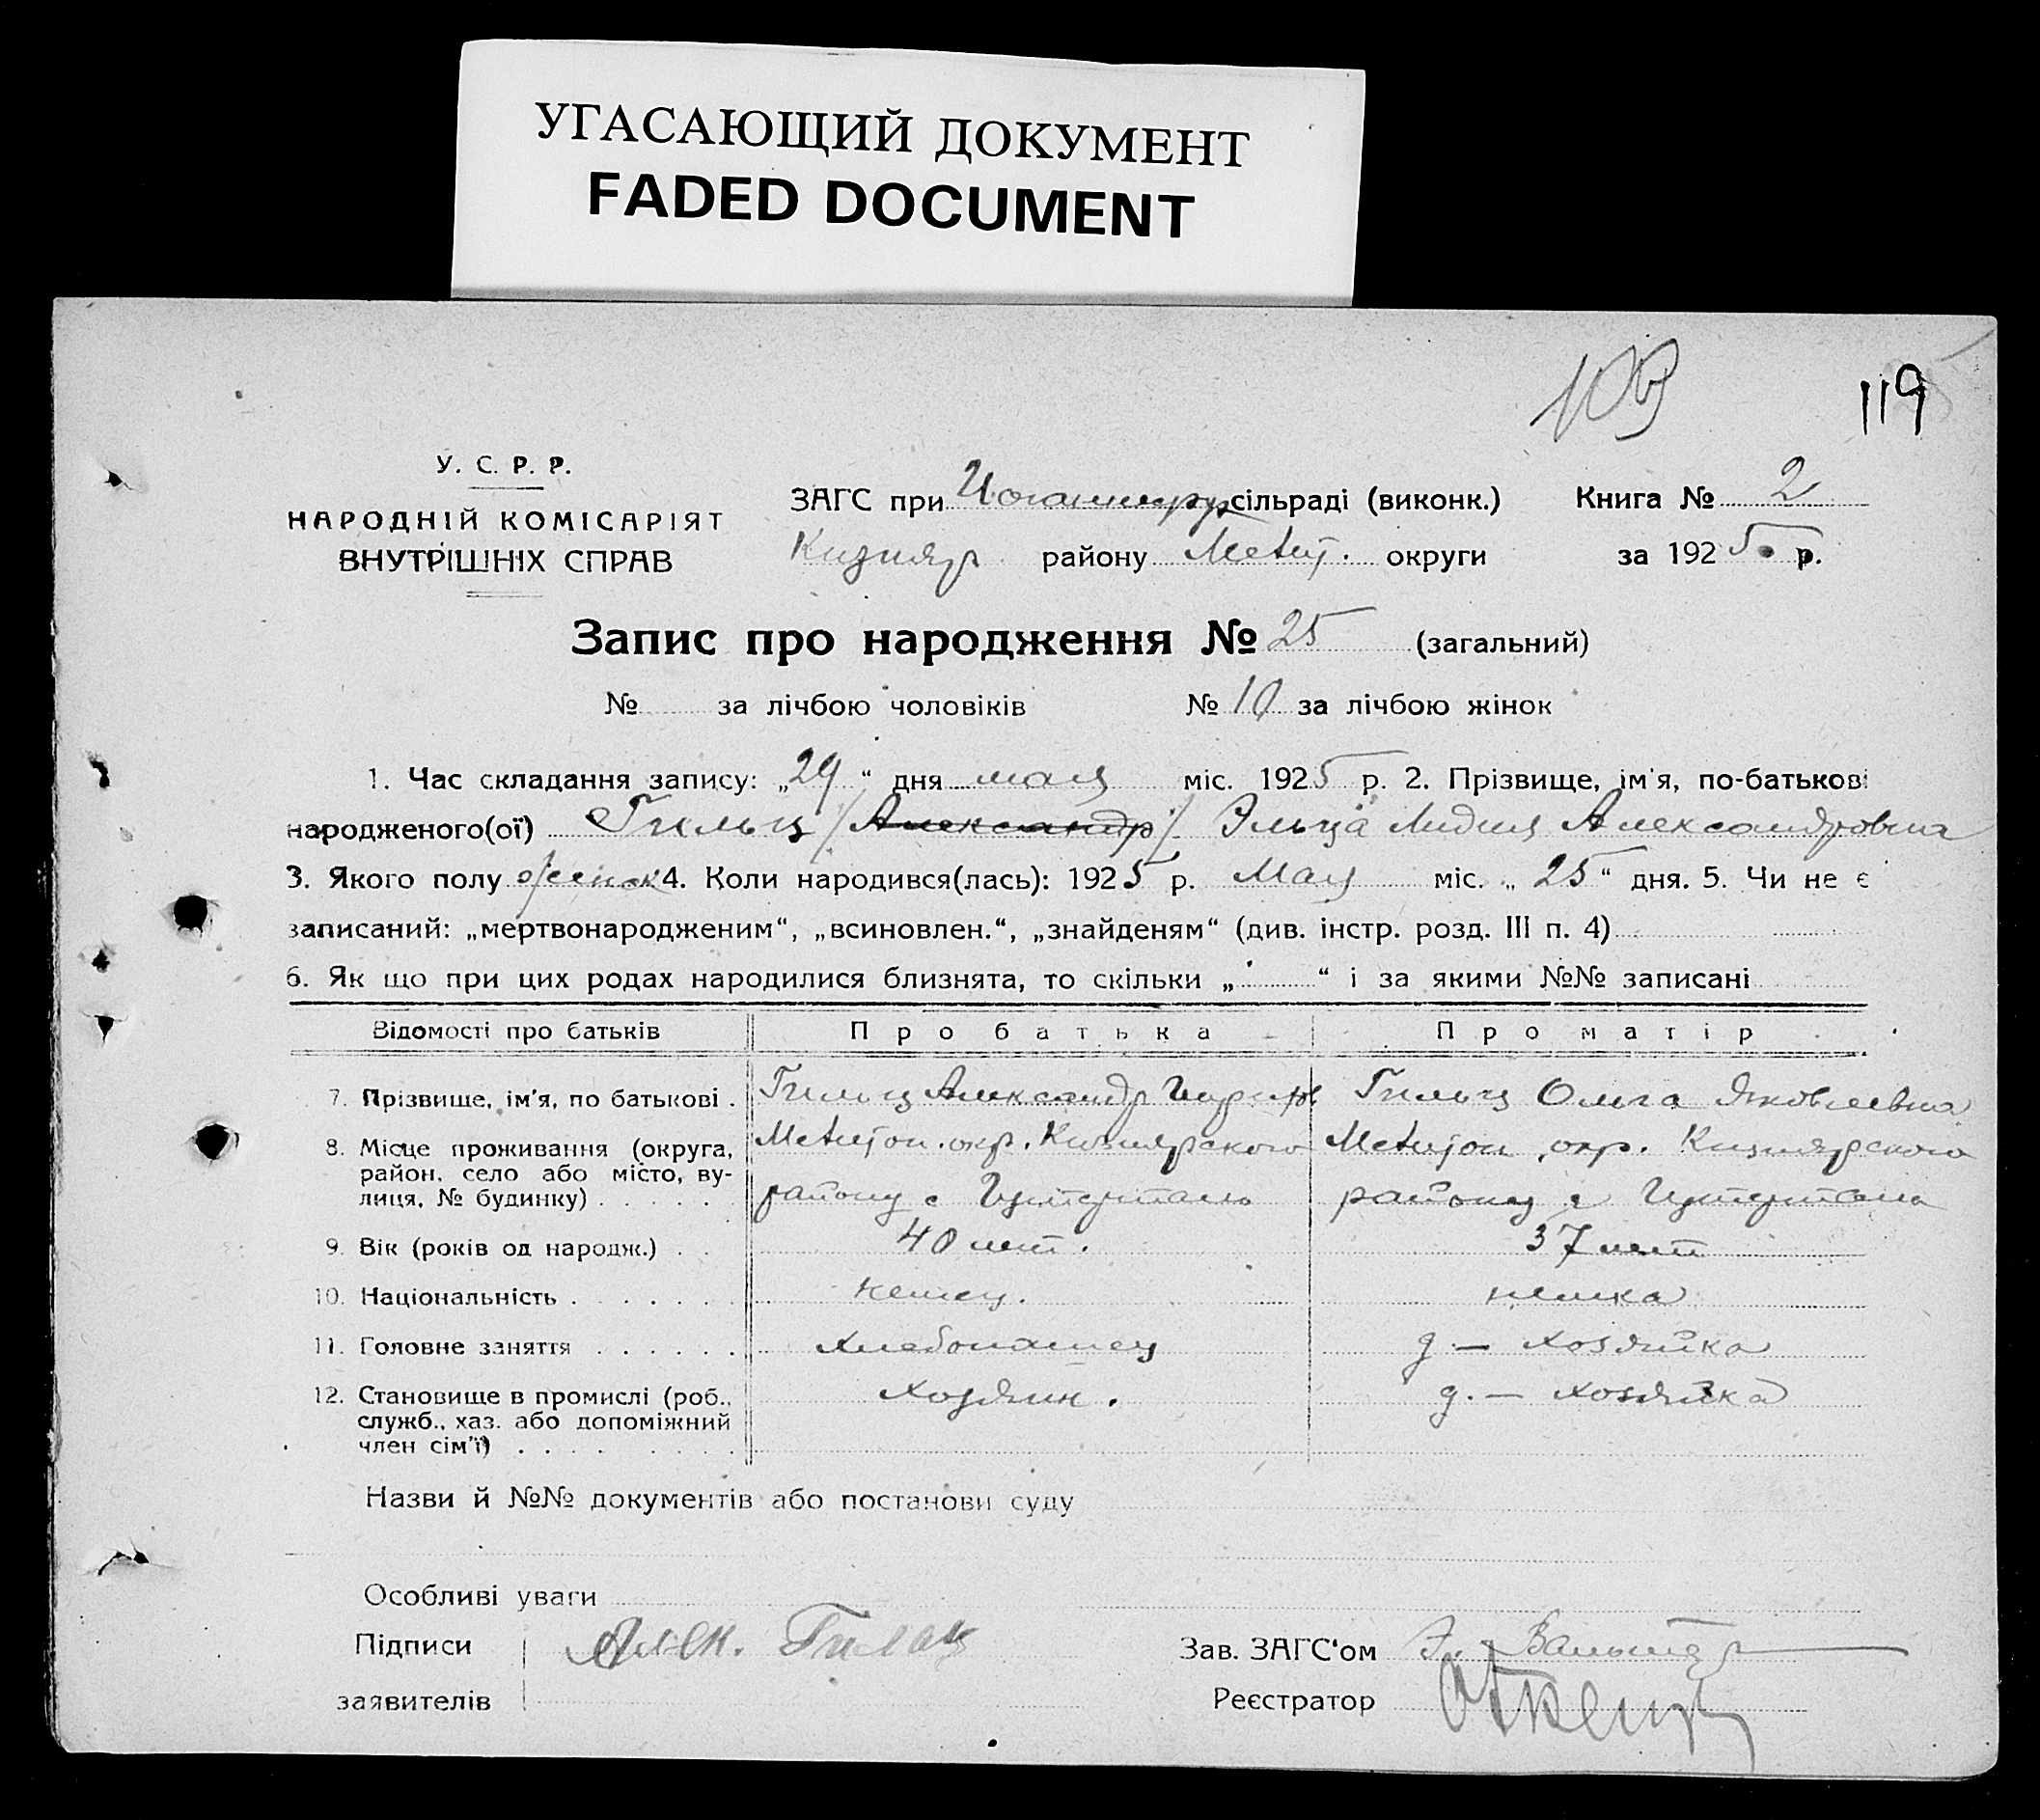 УГАСАЮЩИЙ ДОКУМЕНТ
FADED DOCUMENT
103
119
У. С. Р. Р.
НАРОДНІЙ КОМІСАРІЯТ
ВНУТРІШНІХ СПРАВ
ЗАГС при Иоганнеру сільраді (виконк.) Книга № 2
Кизияр району Мелит. округи за 1925 р.
Запис про народження № 25 (загальний)
№ за лічбою чоловіків № 10 за лічбою жінок
1. Час складання запису: „29“ дня мая міс. 1925 р. 2. Прізвище, ім'я, по-батькові
народженого(ої) Гильц /Александр/ Эльца Лидия Александровна
3. Якого полу женск 4. Коли народився(лась): 1925 р. Мая міс. „25“ дня. 5. Чи не є
записаний: „мертвонародженим“, „всиновлен.“, „знайденям“ (див. інстр. розд. III п. 4)
6. Як що при цих родах народилися близнята, то скільки „ “ і за якими №№ записані
Відомості про батьків Про батька Про матір
7. Прізвище, ім'я, по батькові . Гильц Александр Гильц Ольга Яковлевна
8. Місце проживання (округа, район, село або місто, вулиця, № будинку) . . . . . Мелитоп. окр. Кизиярского району с Мелитоп. окр. Кизиярского району с
9. Вік (років од народж.) . . 40 лет. 37 лет
10. Національність . . . . . . . немец. немка
11. Головне заняття . . . . . . Хлебопашец д — хозяйка
12. Становище в промислі (роб., служб., хаз. або допоміжний член сім'ї) . . . . . . . Хозяин. д. — хозяйка
Назви й №№ документів або постанови суду
Особливі уваги
Підписи Алек. Гильц Зав. ЗАГС'ом Э. Вальтер
заявителів Реєстратор